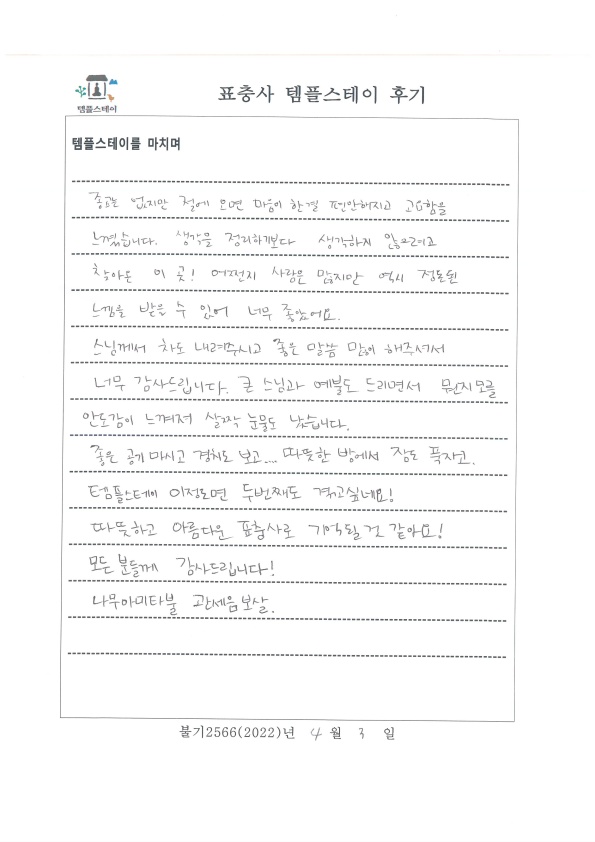 템플스테이
표충사 템플스테이 후기
템플스테이를 마치며
종교는 없지만 절에 오면 마음이 한결 편안해지고 고요함을
느꼈습니다. 생각을 정리하기보다 생각하지 않으려고
찾아온 이 곳! 어쩐지 사람은 많지만 역시 정돈된
느낌을 받을 수 있어 너무 좋았어요.
스님께서 차도 내려주시고 좋은 말씀 많이 해주셔서
너무 감사드립니다. 큰 스님과 예불도 드리면서 뭔지모를
안도감이 느껴져 살짝 눈물도 났습니다.
좋은 공기 마시고 경치도 보고.... 따뜻한 방에서 잠도 푹자고.
템플스테이 이정도면 두번째도 겪고싶네요!
따뜻하고 아름다운 표충사로 기억될 것 같아요!
모든 분들께 감사드립니다!
나무아미타불 관세음보살.
불기2566(2022)년 4 월 3 일